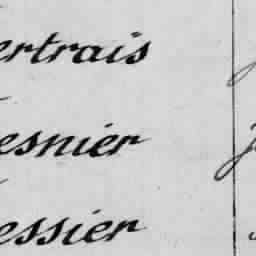 ertrais
esnier
essier